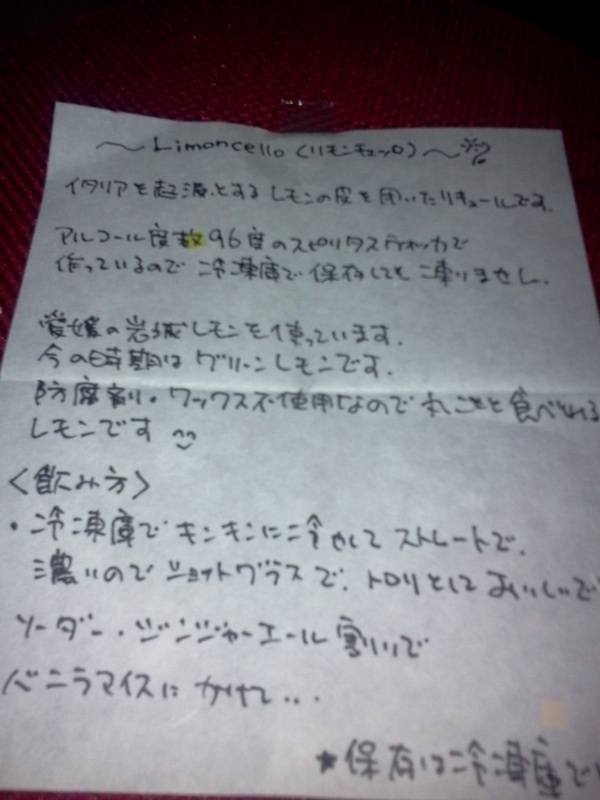 〜Limoncello (リモンチェッロ)〜
イタリアを起源とするレモンの皮を用いたリキュールです。
アルコール度数96度のスピリタスウォッカで
作っているので 冷凍庫で保存しても凍りません。
愛媛の岩城レモンを使っています。
今の時期はグリーンレモンです。
防腐剤・ワックス不使用なので丸ごと食べれる
レモンです
<飲み方>
・冷凍庫でキンキンに冷やしてストレートで。
濃いのでショットグラスで。トロリとしておいしいで
ソーダー・ジンジャーエール割りで
バニラアイスにかけて...
★保存は冷凍庫で